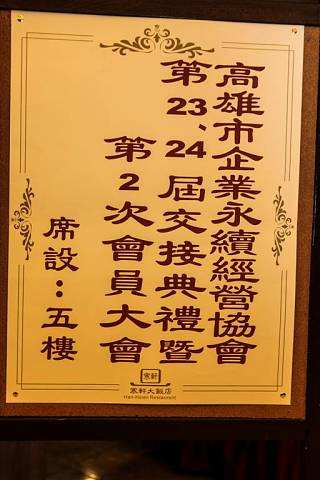 高雄市企業永續經營協會
第23、24屆交接典禮暨
第2次會員大會
席設：五樓
寒軒
寒軒大飯店
Han-Hsien Restaurant